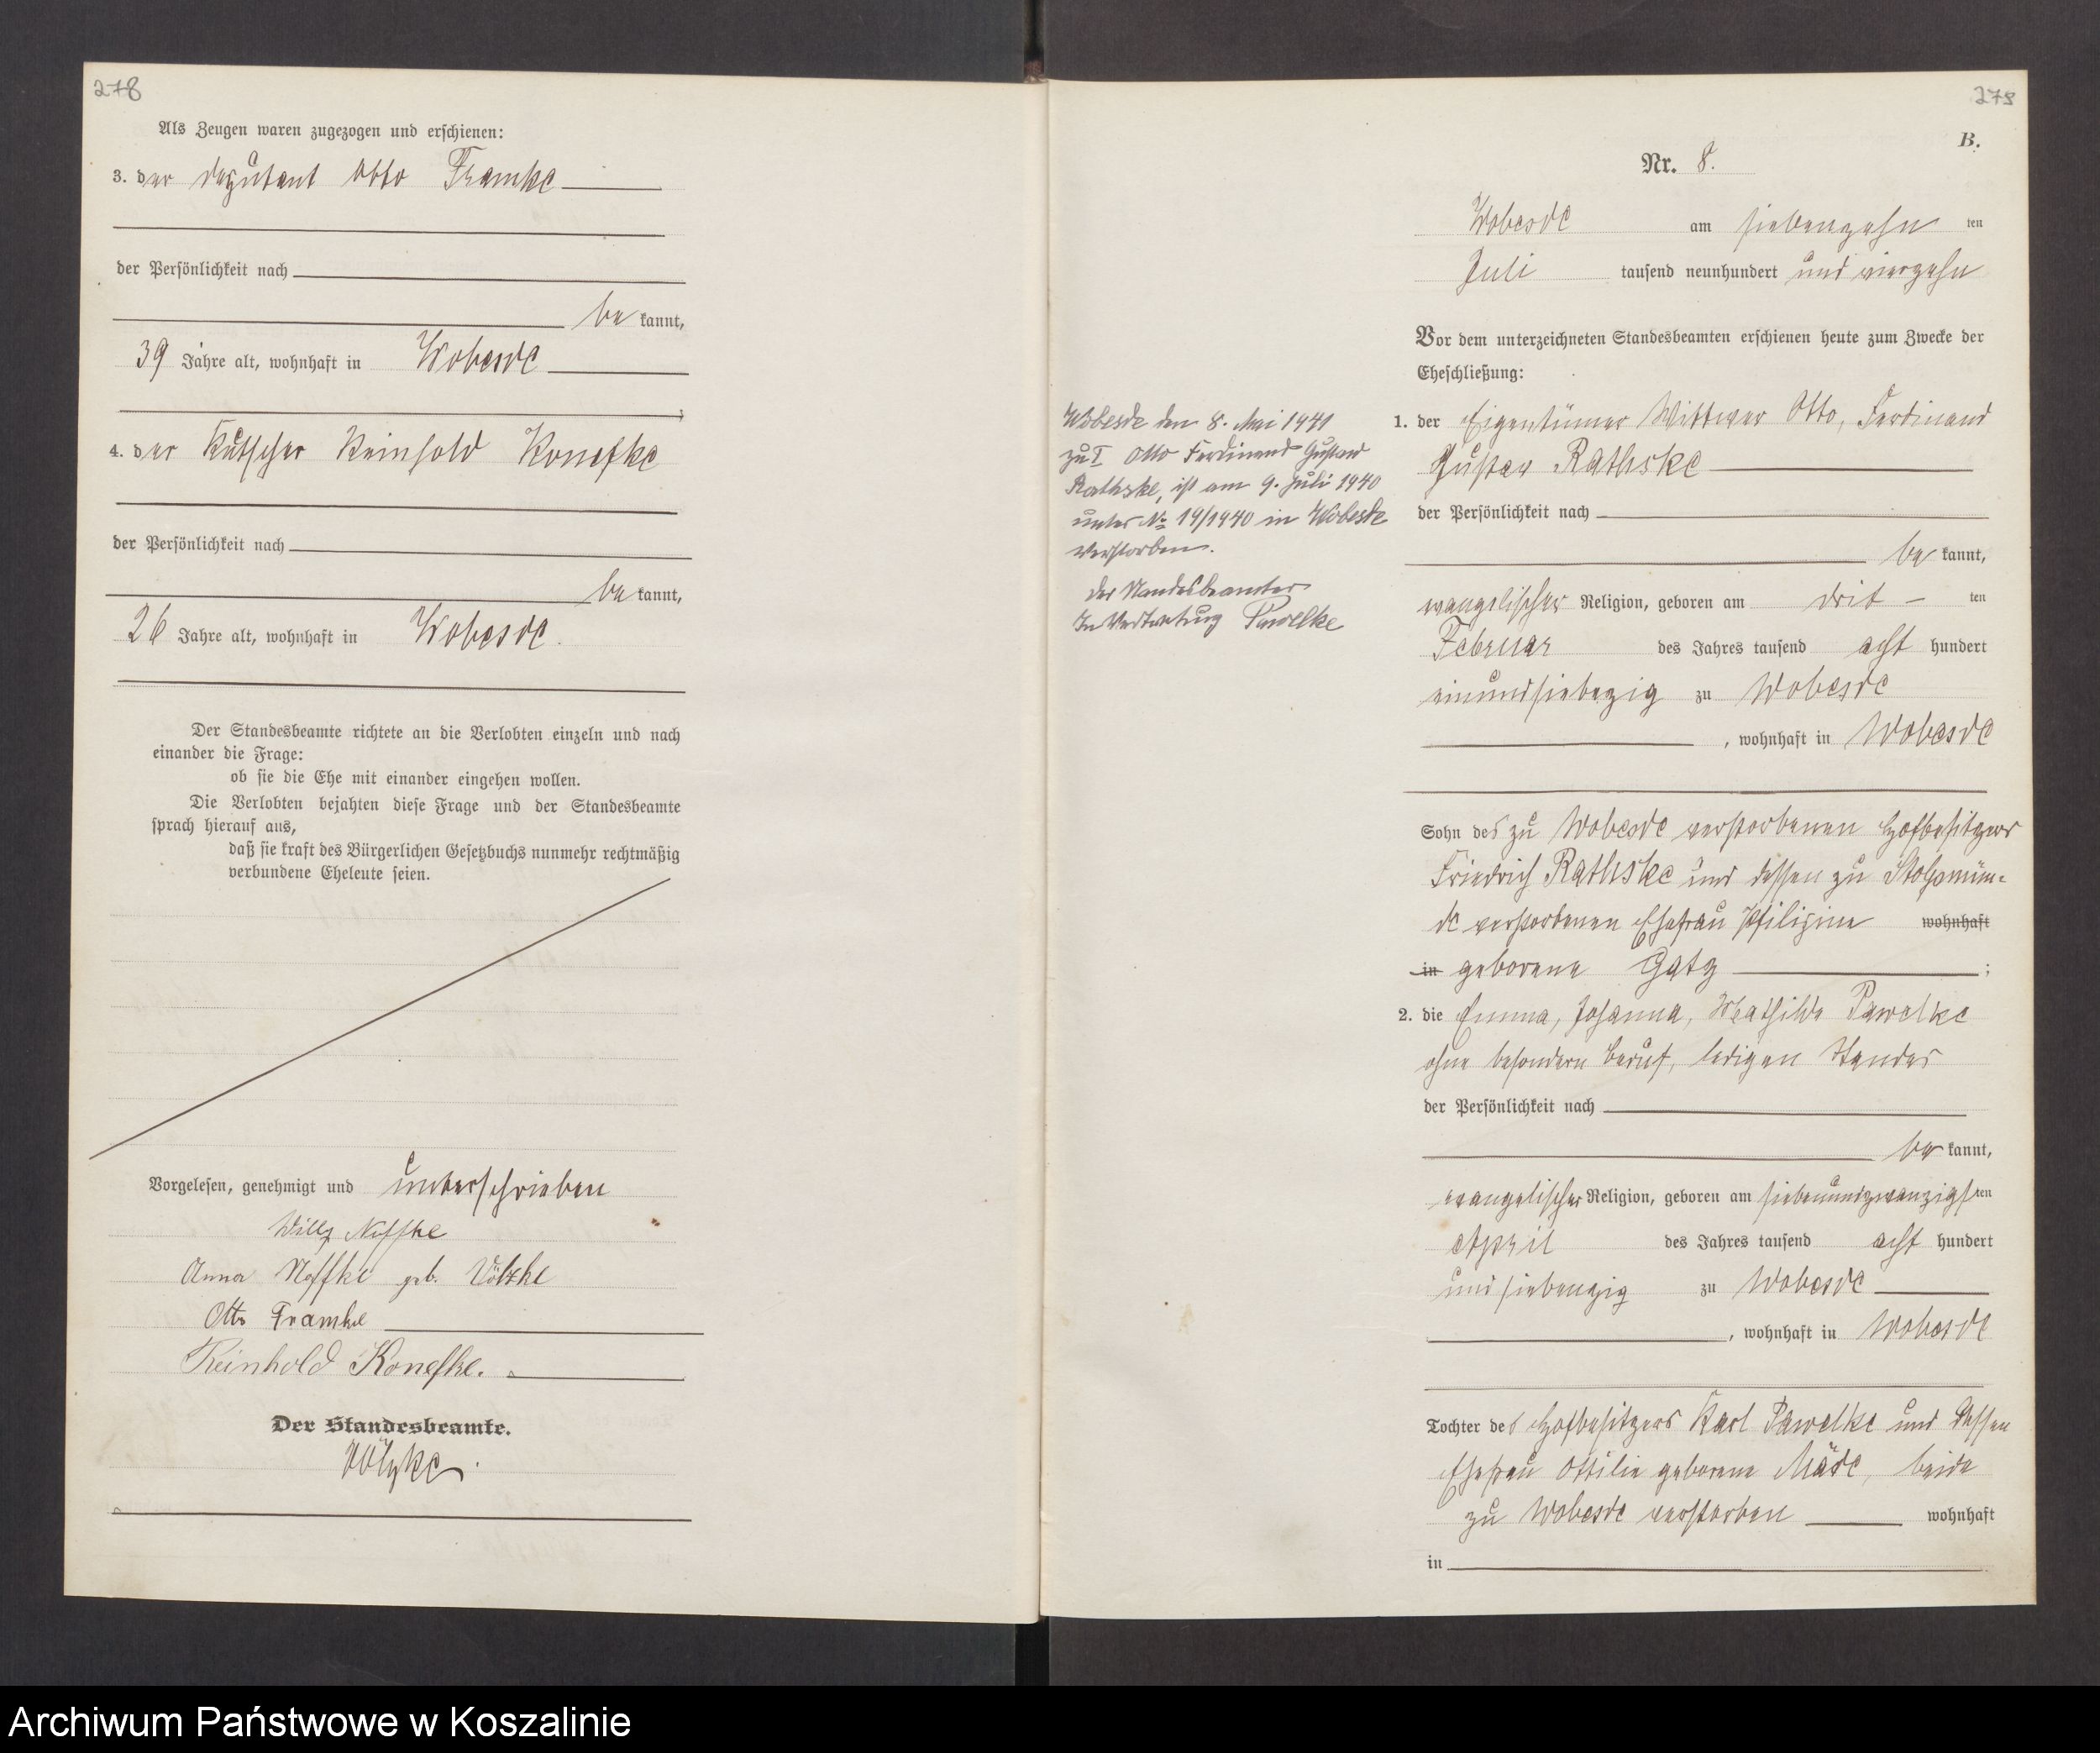 278
Als Zeugen waren zugezogen und erschienen:
3. der Deputant Otto Framke
der Persönlichkeit nach
be kannt,
39 Jahre alt, wohnhaft in Wobesde
4. der Kutscher Reinhold Konefke
der Persönlichkeit nach
be kannt,
26 Jahre alt, wohnhaft in Wobesde.
Der Standesbeamte richtete an die Verlobten einzeln und nach
einander die Frage:
ob sie die Ehe mit einander eingehen wollen.
Die Verlobten bejahten diese Frage und der Standesbeamte
sprach hierauf aus,
daß sie kraft des Bürgerlichen Gesetzbuchs nunmehr rechtmäßig
verbundene Eheleute seien.
Vorgelesen, genehmigt und unterschrieben
Willy Noffke
Anna Noffke geb. Völzke
Otto Framke
Reinhold Konefke.
Der Standesbeamte.
Völzke.
279
B.
Nr. 8.
Wobesde am siebenzehn ten
Juli tausend neunhundert und vierzehn
Vor dem unterzeichneten Standesbeamten erschienen heute zum Zwecke der
Eheschließung:
1. der Eigentümer Wittwer Otto, Ferdinand
Gustav Rathske
der Persönlichkeit nach
be kannt,
evangelischer Religion, geboren am drit – ten
Februar des Jahres tausend acht hundert
einundsiebzig zu Wobesde
, wohnhaft in Wobesde
Sohn des zu Wobesde verstorbenen Hofbesitzers
Friedrich Rathske und dessen zu Stolpmün-
de verstorbenen Ehefrau Philipine wohnhaft
in geborene Gatz ;
2. die Emma, Johanna, Mathilde Pawelke
ohne besondern Beruf, ledigen Standes
der Persönlichkeit nach
be kannt,
evangelischer Religion, geboren am siebenundzwanzigsten
April des Jahres tausend acht hundert
und siebenzig zu Wobesde
, wohnhaft in Wobesde
Tochter des Hofbesitzers Karl Pawelke und dessen
Ehefrau Ottilie geborene Mäde, beide
zu Wobesde verstorben wohnhaft
in
Wobesde den 8. Mai 1941
zu I Otto Ferdinand Gustav
Rathske, ist am 9. Juli 1940
unter № 19/1940 in Wobesde
verstorben.
Der Standesbeamter
In Vertretung Pawelke
Archiwum Państwowe w Koszalinie